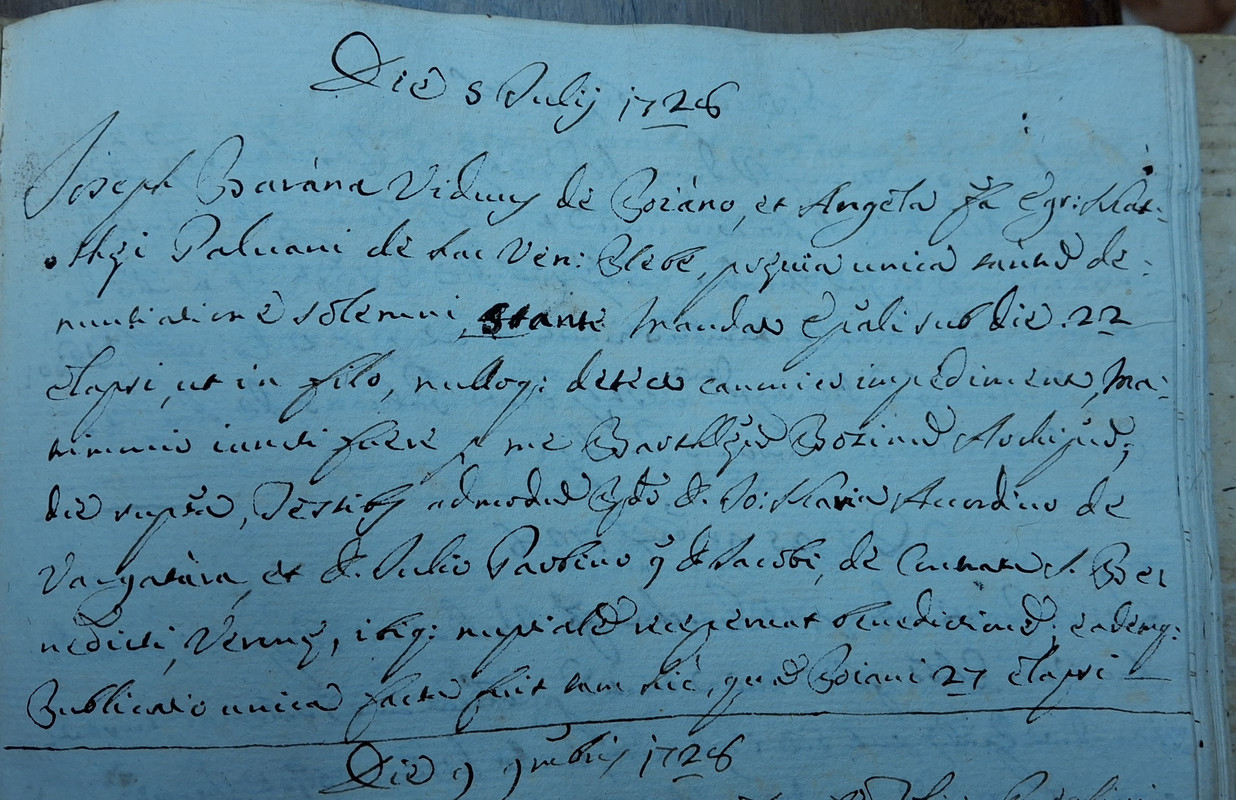 Die 5 Julij 1726
Joseph Barána Viduus de Boiáno, et Angela fa Egr: Mat:
thęi Paluani de hac Ven: Plebe, pręuia unica tantũ de:
nuntiatione solemni, stante Mandato Epãli sub die 22
elapsi, ut in filo, nulloq: detecto canonico impedimento, Ma:
trimonio iuncti fuere p me Bartħęũ Bozinũ Archipũ,
die suprã, Testibus admodũ Rdõ D. Jo: Maria Accordino de
Vangatára, et D. Julio Paolino q D. Jacobi, de Contrata S. Be:
nedicti, Veronę, ibiq: nuptialẽ receperunt benedictionẽ; eademq:
Publicatio unica facta fuit tam hic, quã Boiani 27 elapsi
Die 9 9mbris 1726